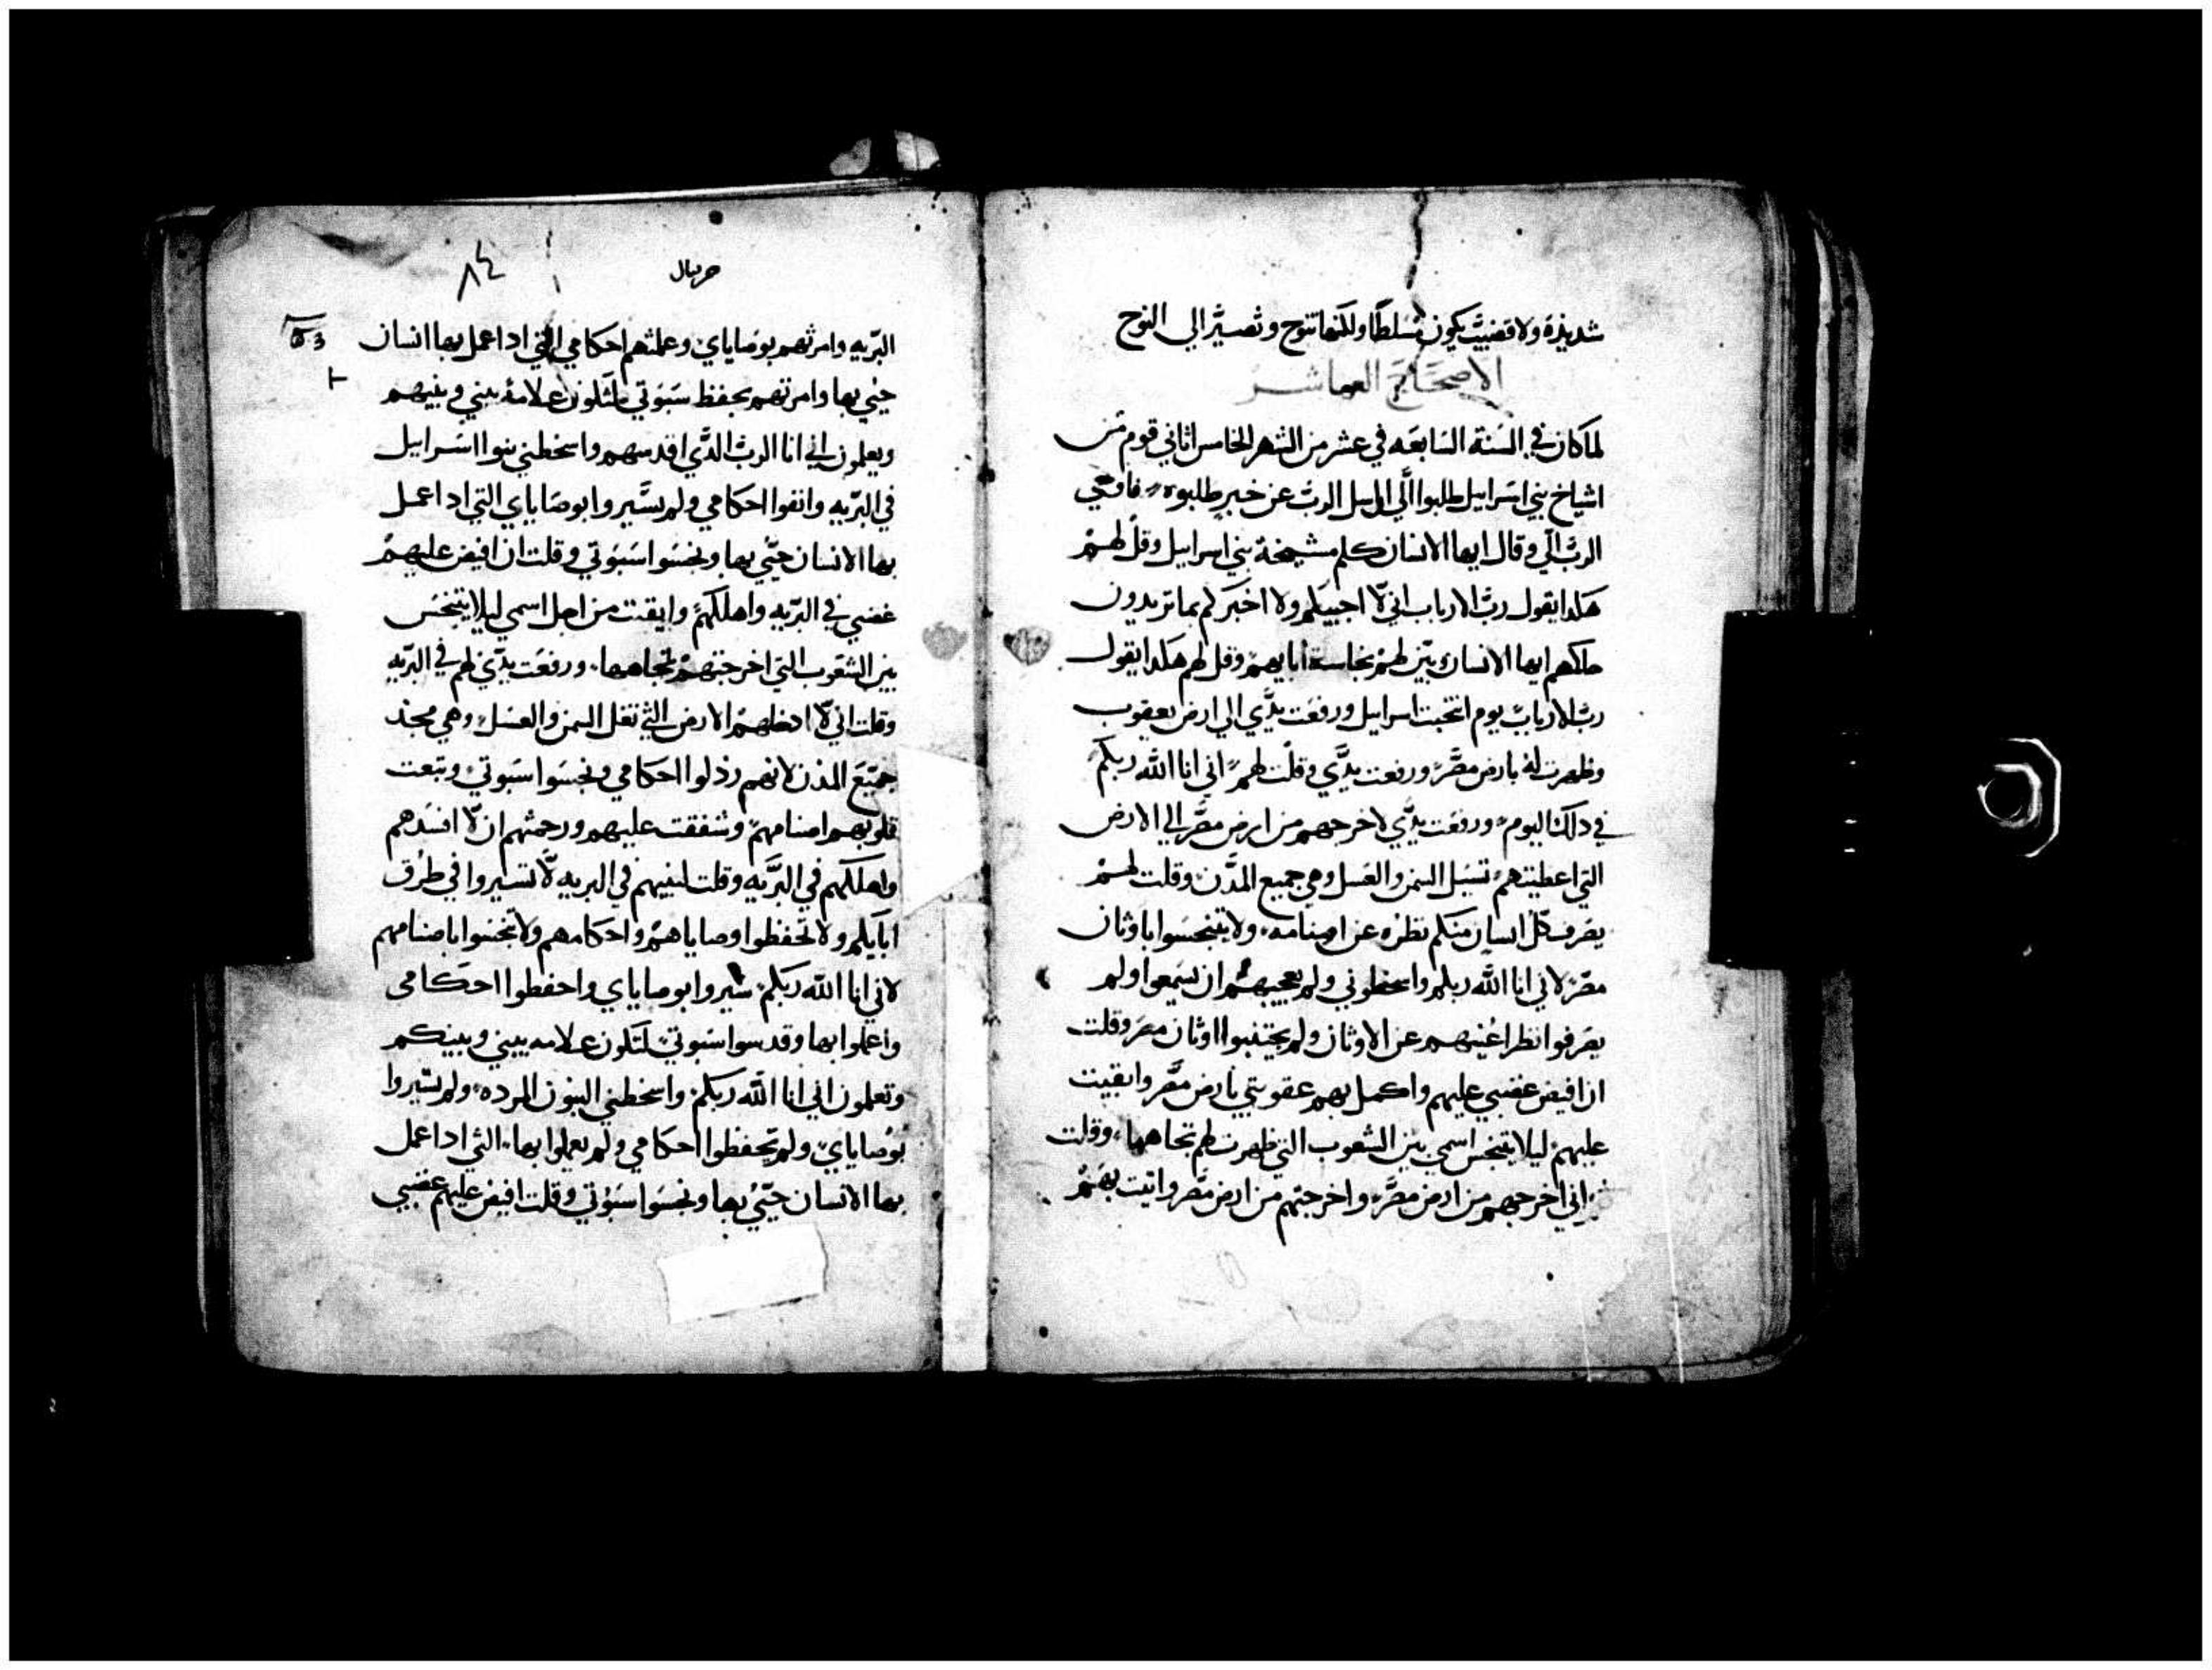 شديدة ولا قضيب يكون مسلطا ولكنها تنوح وتصير الي النوح
الاصحاح العاشر
لما كان في السنة السابعه في عشر من الشهر الخامس اتاني قوم من
اشياخ بني اسراييل طلبوا الي الرب عن خبر طلبوه فاوحي
الرب الي وقال ايها الانسان كلم مشيخة بني اسراييل وقل لهم
هكدا يقول رب الارباب اني لا اجيبكم ولا اخبركم بما تريدون
حاكمهم ايها الانسان بين لهم نجاسة ابايهم وقل لهم هكدا يقول
رب الارباب يوم انتخبت اسراييل ورفعت يدي الي ارض يعقوب
وظهرت له بارض مصر ورفعت يدي وقلت لهم اني انا الله ربكم
في دلك اليوم ورفعت يدي لاخرجهم من ارض مصر الي الارض
التي اعطيتهم تسيل السمن والعسل وهي جميع المدن وقلت لهم
يصرف كل انسان منكم نظره عن اصنامه ولا يتنجسوا باوثان
مصر لاني انا الله ربكم واسخطوني ولم يعجبهم ان يسمعوا ولم
يصرفوا نظر اعينهم عن الاوثان ولم يجتنبوا اوثان مصر وقلت
ان افيض غضبي عليهم واكمل بهم عقوبتي بارض مصر وابقيت
عليهم ليلا يتنجس اسمي بين الشعوب التي ظهرت لهم تجاهها وقلت
اني اخرجهم من ارض مصر واخرجتهم من ارض مصر واتيت بهم
حزقيال
٨٤
البريه وامرتهم بوصاياي وعلمتهم احكامي التي ادا عمل بها انسان
حيي بها وامرتهم بحفظ سبوتي لتكون علامة بيني وبينهم
ويعلمون اني انا الرب الدي اقدسهم واسخطني بنوا اسراييل
في البريه وانفوا احكامي ولم يسيروا بوصاياي التي ادا عمل
بها الانسان حيي بها ونجسوا سبوتي وقلت ان افيض عليهم
غضبي في البريه واهلكهم وابقيت من اجل اسمي ليلا يتنجس
بين الشعوب التي اخرجتهم تجاهها ورفعت يدي لهم في البريه
وقلت اني لا ادخلهم الارض التي تغل السمن والعسل وهي مجد
جميع المدن لانهم رذلوا احكامي ونجسوا سبوتي وتبعت
قلوبهم اصنامهم وشفقت عليهم ورحمتهم ان لا افسدهم
واهلكهم في البريه وقلت لبنيهم في البريه لا تسيروا في طرق
ابايكم ولا تحفظوا وصاياهم واحكامهم ولا تنجسوا باصنامهم
لاني انا الله ربكم سيروا بوصاياي واحفظوا احكامي
واعملوا بها وقدسوا سبوتي لتكون علامه بيني وبينكم
وتعلمون اني انا الله ربكم واسخطني البنون المرده ولم يسيروا
بوصاياي ولم يحفظوا احكامي ولم يعملوا بها التي ادا عمل
بها الانسان حيي بها ونجسوا سبوتي وقلت افيض عليهم غضبي